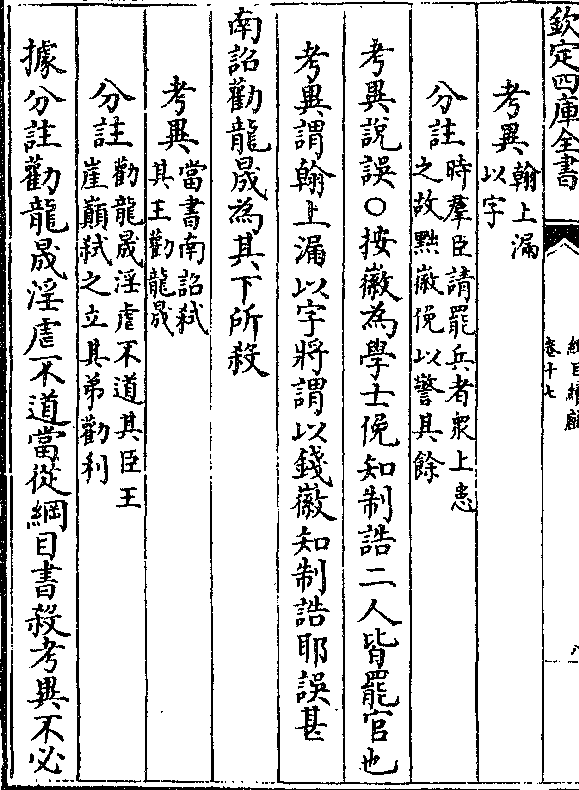 欽定四庫全書
卷十七
考異翰上漏
以字
分註時羣臣請罷兵者衆上患
之故黜徽俛以警其餘
考異說誤○按徽為學士俛知制誥二人皆罷官也
考異謂翰上漏以字將謂以錢徽知制誥耶誤甚
南詔勸龍晟為其下所殺
考異當書南詔弑
其王勸龍晟
分註勸龍晟淫虐不道其臣王
崖巔弑之立其弟勸利
據分註勸龍晟淫虐不道當從綱目書殺考異不必